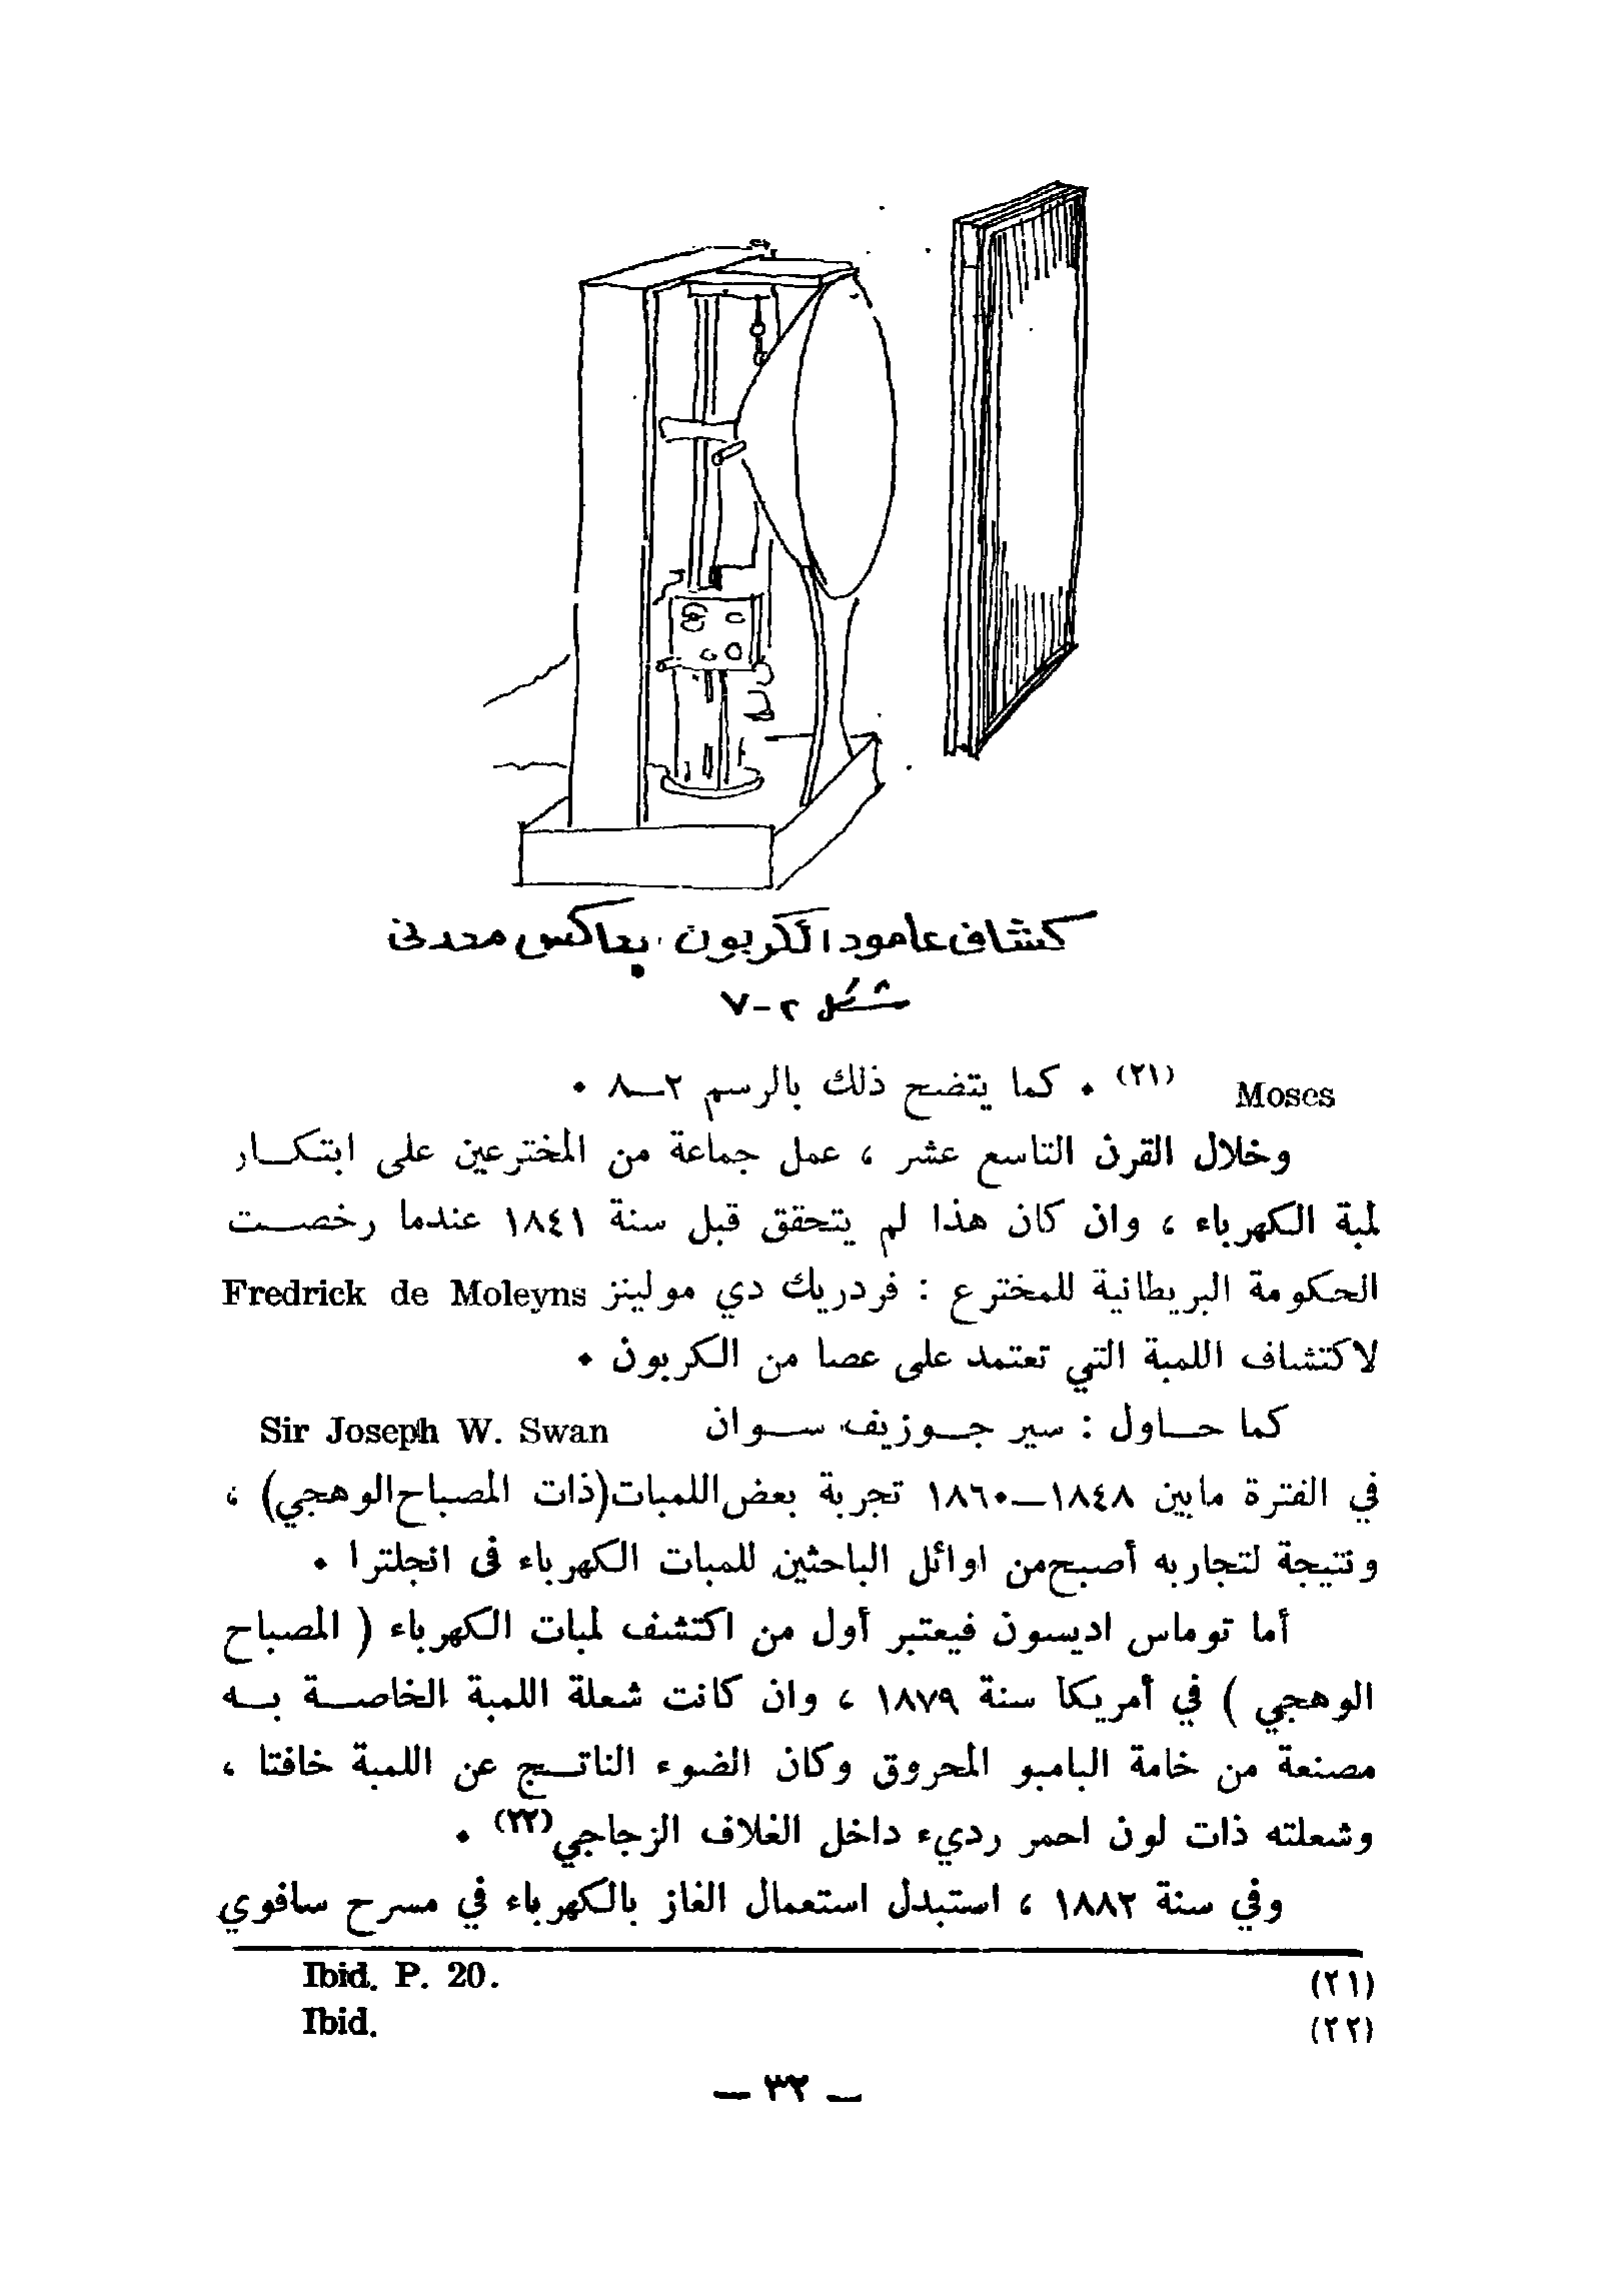 كشاف عامود الكربون، بعاكس معدني
شكل ٢-٧
Moses (٢١) . كما يتضح ذلك بالرسم ٢—٨ .
وخلال القرن التاسع عشر ، عمل جماعة من المخترعين على ابتكار
لمبة الكهرباء ، وان كان هذا لم يتحقق قبل سنة ١٨٤١ عندما رخصت
الحكومة البريطانية للمخترع : فردريك دي مولينز Fredrick de Moleyns
لاكتشاف اللمبة التي تعتمد على عصا من الكربون .
كما حاول : سير جوزيف سوان Sir Joseph W. Swan
في الفترة مابين ١٨٤٨—١٨٦٠ تجربة بعض اللمبات (ذات المصباح الوهجي) ،
ونتيجة لتجاربه أصبح من اوائل الباحثين للمبات الكهرباء فى انجلترا .
أما توماس اديسون فيعتبر أول من اكتشف لمبات الكهرباء ( المصباح
الوهجي ) في أمريكا سنة ١٨٧٩ ، وان كانت شعلة اللمبة الخاصة به
مصنعة من خامة البامبو المحروق وكان الضوء الناتج عن اللمبة خافتا ،
وشعلته ذات لون احمر رديء داخل الغلاف الزجاجي (٢٢) .
وفي سنة ١٨٨٢ ، استبدل استعمال الغاز بالكهرباء في مسرح سافوي
(٢١) Ibid. P. 20.
(٢٢) Ibid.
— ٣٢ —